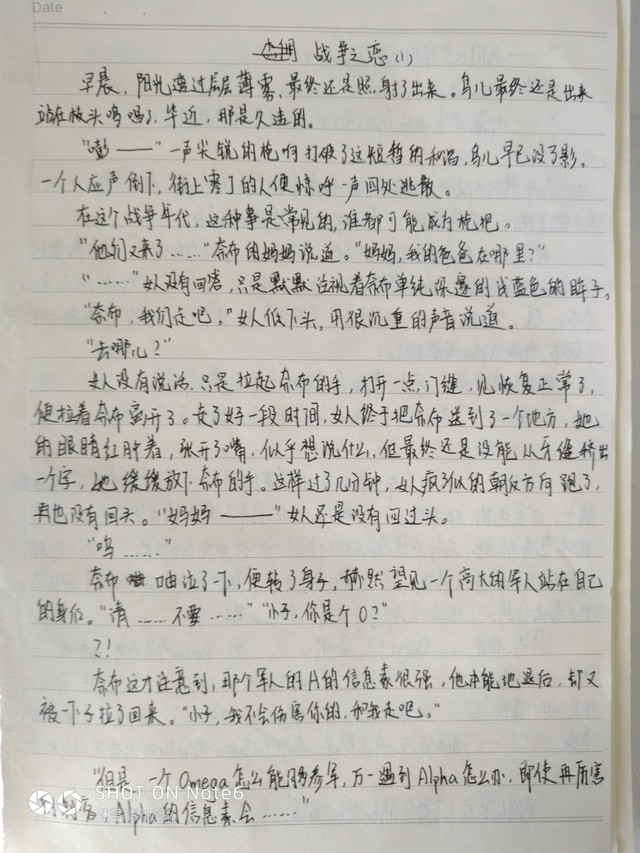 Date
战争之恋(1)
早晨，阳光透过层层薄雾，最终还是照射了出来。鸟儿最终还是出来
站在枝头鸣唱了，毕近，那是久违的。
“嘭——”一声尖锐的枪响打破了这短暂的和谐，鸟儿早已没了影。
一个人应声倒下，街上寥寥的人便惊呼一声四处逃散。
在这个战争年代，这种事是常见的，谁都可能成为枪把。
“他们又来了……”奈布的妈妈说道。“妈妈，我的爸爸在哪里？”
“……”女人没有回答，只是默默注视着奈布单纯深邃的浅蓝色的眸子。
“奈布，我们走吧。”女人低下头，用很沉重的声音说道。
“去哪儿？”
女人没有说话，只是拉起奈布的手，打开一点门缝，见恢复正常了，
便拉着奈布离开了。走了好一段时间，女人终于把奈布送到了一个地方，她
的眼睛红肿着，张开了嘴，似乎想说什么，但最终还是没能从牙缝挤出
一个字，她缓缓放下奈布的手。这样过了几分钟，女人疯了似的朝反方向跑了，
再也没有回头。“妈妈———”女人还是没有回过头。
“呜……”
奈布呜泣了一下，便转了身子，赫然望见一个高大的军人站在自己
的身后。“请……不要……”“小子，你是个O？”
？！
奈布这才注意到，那个军人的A的信息素很强，他本能地退后，却又
被一下子拉了回来。“小子，我不会伤害你的，和我走吧。”
“但是，一个Omega怎么能够参军，万一遇到Alpha怎么办，即使再厉害
Alpha的信息素会……”
SHOT ON Note6